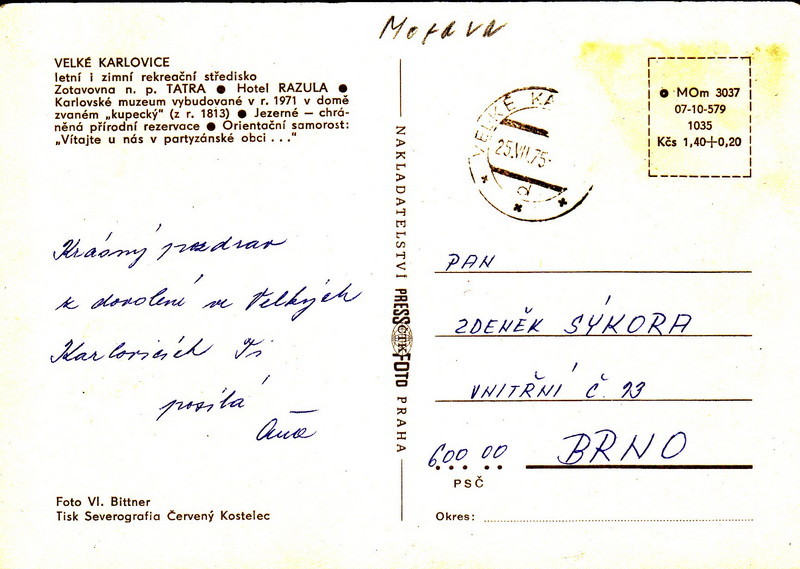 Morava
VELKÉ KARLOVICE
letní i zimní rekreační středisko
Zotavovna n. p. TATRA ● Hotel RAZULA ●
Karlovské muzeum vybudované v r. 1971 v domě
zvaném „kupecký" (z r. 1813) ● Jezerné — chrá-
něná přírodní rezervace ● Orientační samorost:
„Vítajte u nás v partyzánské obci . . ."
Krásný pozdrav
z dovolené ve Velkých
Karlovicích Ti
posílá
Foto Vl. Bittner
Tisk Severografia Červený Kostelec
NAKLADATELSTVÍ PRESSFOTO PRAHA
ČTK
VELKÉ KA
25.VII.75-
2
● MOm 3037
07-10-579
1035
Kčs 1,40+0,20
PAN
ZDENĚK SÝKORA
VNITŘNÍ Č. 23
600 00 BRNO
PSČ
Okres: